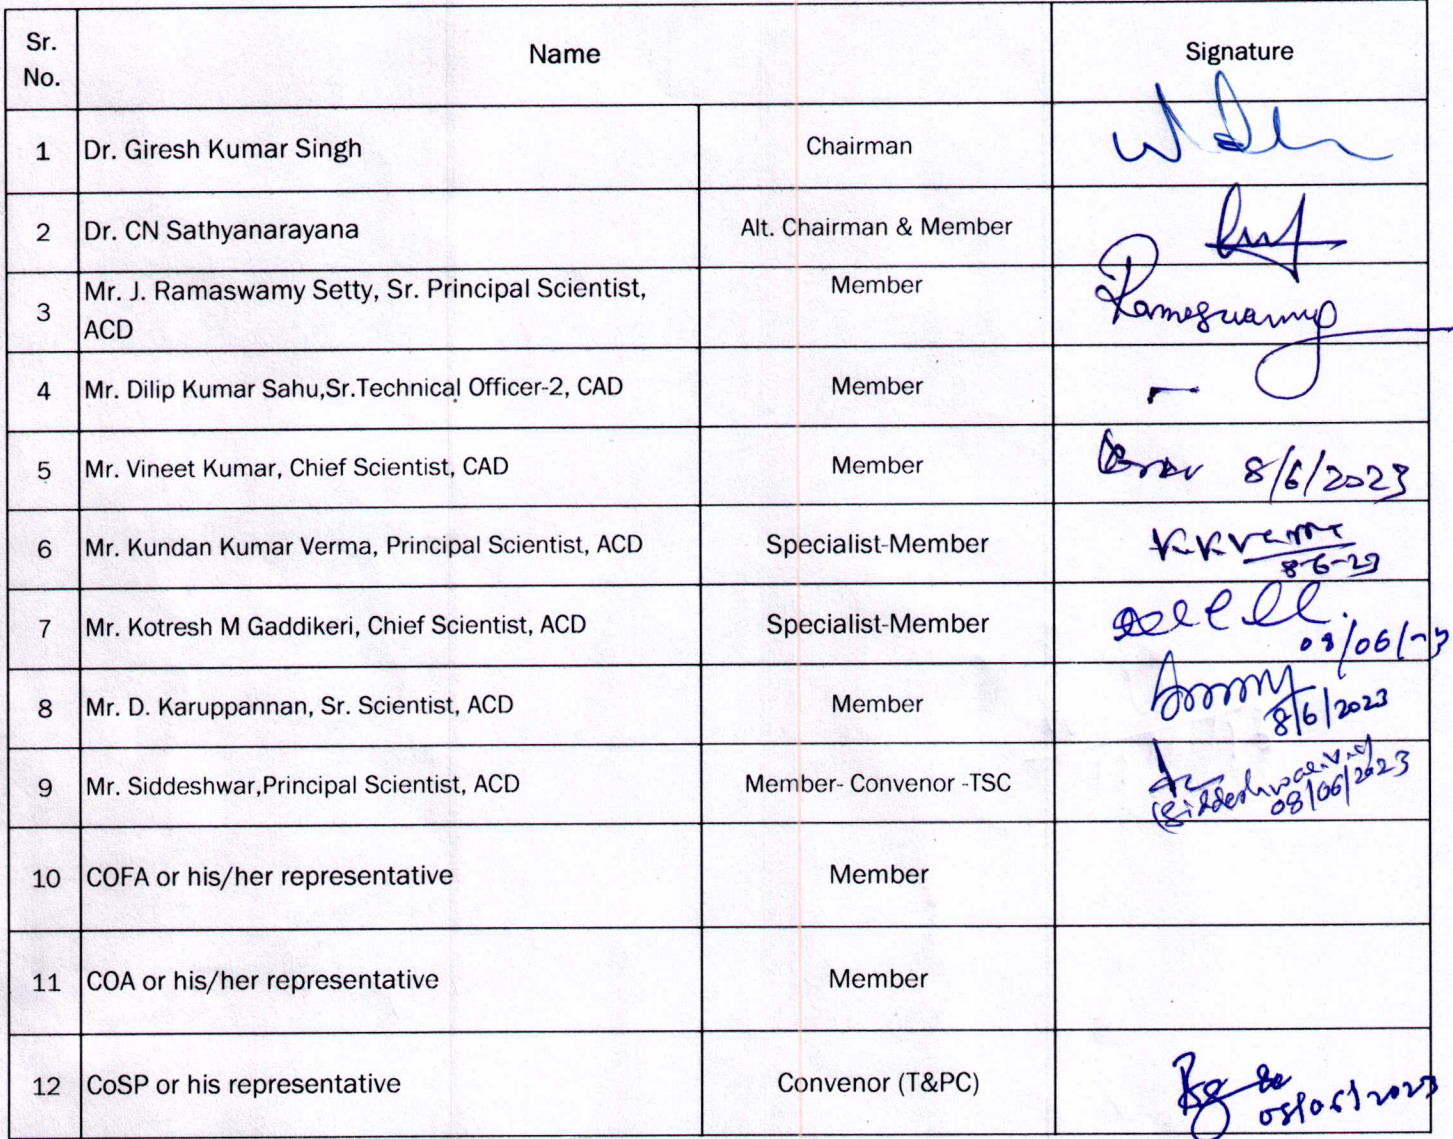 Sr. No. Name Signature
1 Dr. Giresh Kumar Singh Chairman
2 Dr. CN Sathyanarayana Alt. Chairman & Member
3 Mr. J. Ramaswamy Setty, Sr. Principal Scientist, Member
ACD
Ramaswamy
4 Mr. Dilip Kumar Sahu,Sr.Technical Officer-2, CAD Member -
5 Mr. Vineet Kumar, Chief Scientist, CAD Member 8/6/2023
6 Mr. Kundan Kumar Verma, Principal Scientist, ACD Specialist-Member KKVerma
8-6-23
7 Mr. Kotresh M Gaddikeri, Chief Scientist, ACD Specialist-Member
08/06/23
8 Mr. D. Karuppannan, Sr. Scientist, ACD Member
8/6/2023
9 Mr. Siddeshwar,Principal Scientist, ACD Member- Convenor -TSC
08/06/2023
10 COFA or his/her representative Member
11 COA or his/her representative Member
12 CoSP or his representative Convenor (T&PC)
08/06/2023